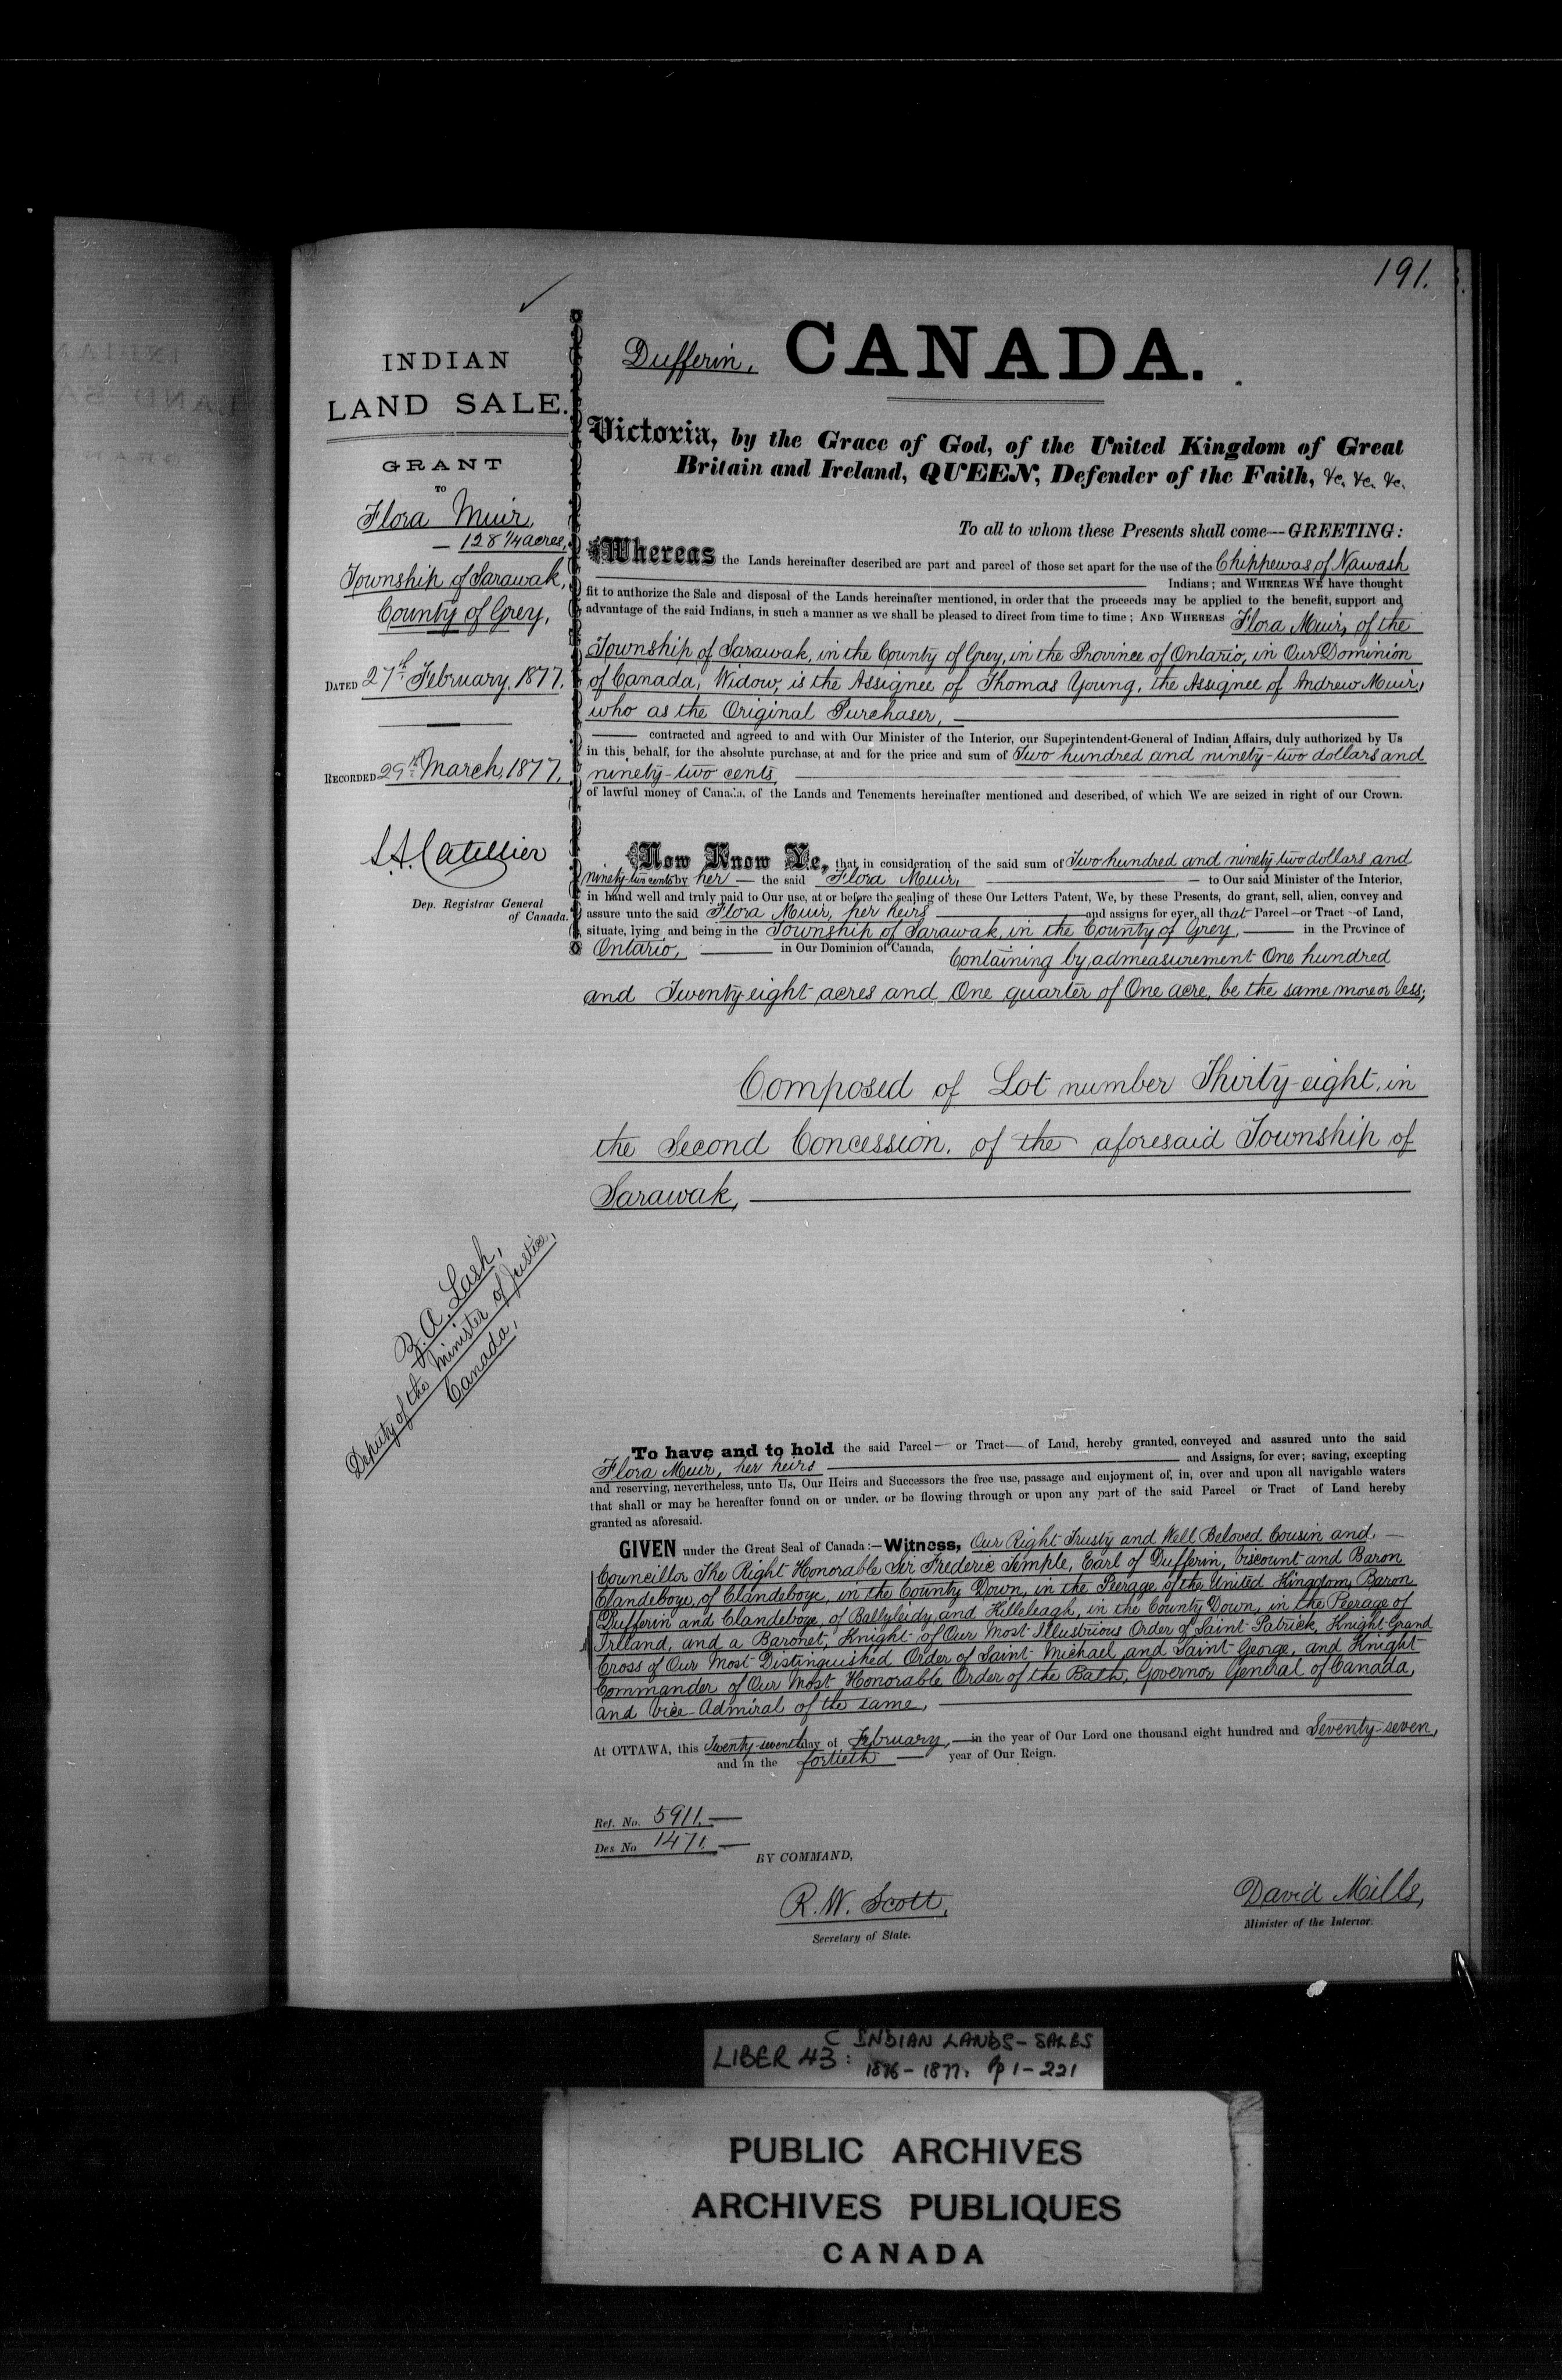 191.
INDIAN
LAND SALE.
GRANT
TO
Flora Muir,
— 128 1/4 acres,
Township of Sarawak,
County of Grey,
DATED 27th February, 1877.
RECORDED 29th March, 1877.
Dep. Registrar General
of Canada.
Z. A. Lash,
Deputy of the Minister of Justice,
Canada,
Dufferin, CANADA.
Victoria, by the Grace of God, of the United Kingdom of Great
Britain and Ireland, QUEEN, Defender of the Faith, &c. &c. &c.
To all to whom these Presents shall come—GREETING:
Whereas the Lands hereinafter described are part and parcel of those set apart for the use of the Chippewas of Nawash
Indians; and WHEREAS WE have thought
fit to authorize the Sale and disposal of the Lands hereinafter mentioned, in order that the proceeds may be applied to the benefit, support and
advantage of the said Indians, in such a manner as we shall be pleased to direct from time to time; AND WHEREAS Flora Muir, of the
Township of Sarawak, in the County of Grey, in the Province of Ontario, in Our Dominion
of Canada, Widow, is the Assignee of Thomas Young, the Assignee of Andrew Muir,
who as the Original Purchaser,
contracted and agreed to and with Our Minister of the Interior, our Superintendent-General of Indian Affairs, duly authorized by Us
in this behalf, for the absolute purchase, at and for the price and sum of Two hundred and ninety-two dollars and
ninety-two cents,
of lawful money of Canada, of the Lands and Tenements hereinafter mentioned and described, of which We are seized in right of our Crown.
Now Know Ye, that in consideration of the said sum of Two hundred and ninety two dollars and
ninety-two cents by her — the said Flora Muir, — to Our said Minister of the Interior,
in hand well and truly paid to Our use, at or before the sealing of these Our Letters Patent, We, by these Presents, do grant, sell, alien, convey and
assure unto the said Flora Muir, her heirs — and assigns for ever, all that Parcel — or Tract — of Land,
situate, lying and being in the Township of Sarawak, in the County of Grey, — in the Province of
Ontario, — in Our Dominion of Canada, Containing by admeasurement One hundred
and Twenty-eight acres and One quarter of One acre, be the same more or less;
Composed of Lot number Thirty-eight, in
the Second Concession, of the aforesaid Township of
Sarawak,
To have and to hold the said Parcel — or Tract — of Land, hereby granted, conveyed and assured unto the said
Flora Muir, her heirs — and Assigns, for ever; saving, excepting
and reserving, nevertheless, unto Us, Our Heirs and Successors the free use, passage and enjoyment of, in, over and upon all navigable waters
that shall or may be hereafter found on or under, or be flowing through or upon any part of the said Parcel or Tract of Land hereby
granted as aforesaid.
GIVEN under the Great Seal of Canada:—Witness, Our Right Trusty and Well Beloved Cousin and —
Councillor The Right Honorable Sir Frederic Temple, Earl of Dufferin, Viscount and Baron
Clandeboye, of Clandeboye, in the County Down, in the Peerage of the United Kingdom, Baron
Dufferin and Clandeboye, of Ballyleidy and Killeleagh, in the County Down, in the Peerage of
Ireland, and a Baronet, Knight of Our Most Illustrious Order of Saint Patrick, Knight Grand
Cross of Our Most Distinguished Order of Saint Michael and Saint George, and Knight
Commander of Our Most Honorable Order of the Bath, Governor General of Canada,
and Vice-Admiral of the same,
At OTTAWA, this Twenty-seventh day of February, — in the year of Our Lord one thousand eight hundred and Seventy-seven,
and in the fortieth — year of Our Reign.
Ref. No. 5911. —
Des No 1471. —
BY COMMAND,
R. W. Scott,
Secretary of State.
David Mills,
Minister of the Interior.
LIBER 43: C INDIAN LANDS - SALES
1876 - 1877. Pp 1 - 221
PUBLIC ARCHIVES
ARCHIVES PUBLIQUES
CANADA